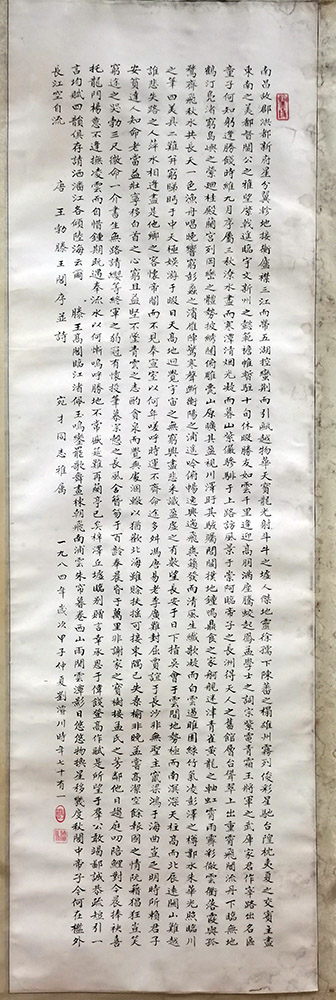 南昌故郡洪都新府星分翼軫地接衡廬襟三江而帶五湖控蠻荊而引甌越物華天寶龍光射斗牛之墟人傑地靈徐孺下陳蕃之榻雄州霧列俊彩星馳臺隍枕夷夏之交賓主盡
東南之美都督閻公之雅望棨戟遙臨宇文新州之懿範襜帷暫駐十旬休暇勝友如雲千里逢迎高朋滿座騰蛟起鳳孟學士之詞宗紫電青霜王將軍之武庫家君作宰路出名區
童子何知躬逢勝餞時維九月序屬三秋潦水盡而寒潭清煙光凝而暮山紫儼驂騑于上路訪風景于崇阿臨帝子之長洲得天人之舊館層臺聳翠上出重霄飛閣流丹下臨無地
鶴汀鳧渚窮島嶼之縈迴桂殿蘭宮列岡巒之體勢披繡闥俯雕甍山原曠其盈視川澤紆其駭矚閭閻撲地鐘鳴鼎食之家舸艦迷津青雀黃龍之軸虹霄雨霽彩徹雲衢落霞與孤
鶩齊飛秋水共長天一色漁舟唱晚響窮彭蠡之濱雁陣驚寒聲斷衡陽之浦遙吟俯暢逸興遄飛爽籟發而清風生纖歌凝而白雲遏睢園綠竹氣凌彭澤之樽鄴水朱華光照臨川
之筆四美具二難并窮睇眄于中天極娛游于暇日天高地迥覺宇宙之無窮興盡悲來識盈虛之有數望長安于日下指吳會于雲間地勢極而南溟深天柱高而北辰遠關山難越
誰悲失路之人萍水相逢盡是他鄉之客懷帝閽而不見奉宣室以何年嗟呼時運不齊命途多舛馮唐易老李廣難封屈賈誼于長沙非無聖主竄梁鴻于海曲豈乏明時所賴君子
安貧達人知命老當益壯寧移白首之心窮且益堅不墜青雲之志酌貪泉而覺爽處涸轍以猶歡北海雖賒扶搖可接東隅已失桑榆非晚孟嘗高潔空餘報國之情阮籍猖狂豈效
窮途之哭勃三尺微命一介書生無路請纓等終軍之弱冠有懷投筆慕宗愨之長風舍簪笏于百齡奉晨昏于萬里非謝家之寶樹接孟氏之芳鄰他日趨庭叨陪鯉對今晨捧袂喜
托龍門楊意不逢撫凌雲而自惜鍾期既遇奏流水以何慚嗚呼勝地不常盛筵難再蘭亭已矣梓澤丘墟臨別贈言幸承恩于偉餞登高作賦是所望于羣公敢竭鄙誠恭疏短引一
言均賦四韻俱存請洒潘江各傾陸海云爾 滕王高閣臨江渚佩玉鳴鑾罷歌舞畫棟朝飛南浦雲朱帘暮卷西山雨閒雲潭影日悠悠物換星移幾度秋閣中帝子今何在檻外
長江空自流
唐 王勃滕王閣序並詩 宛才同志雅屬 一九八四年歲次甲子仲夏劉濬川時年七十有一